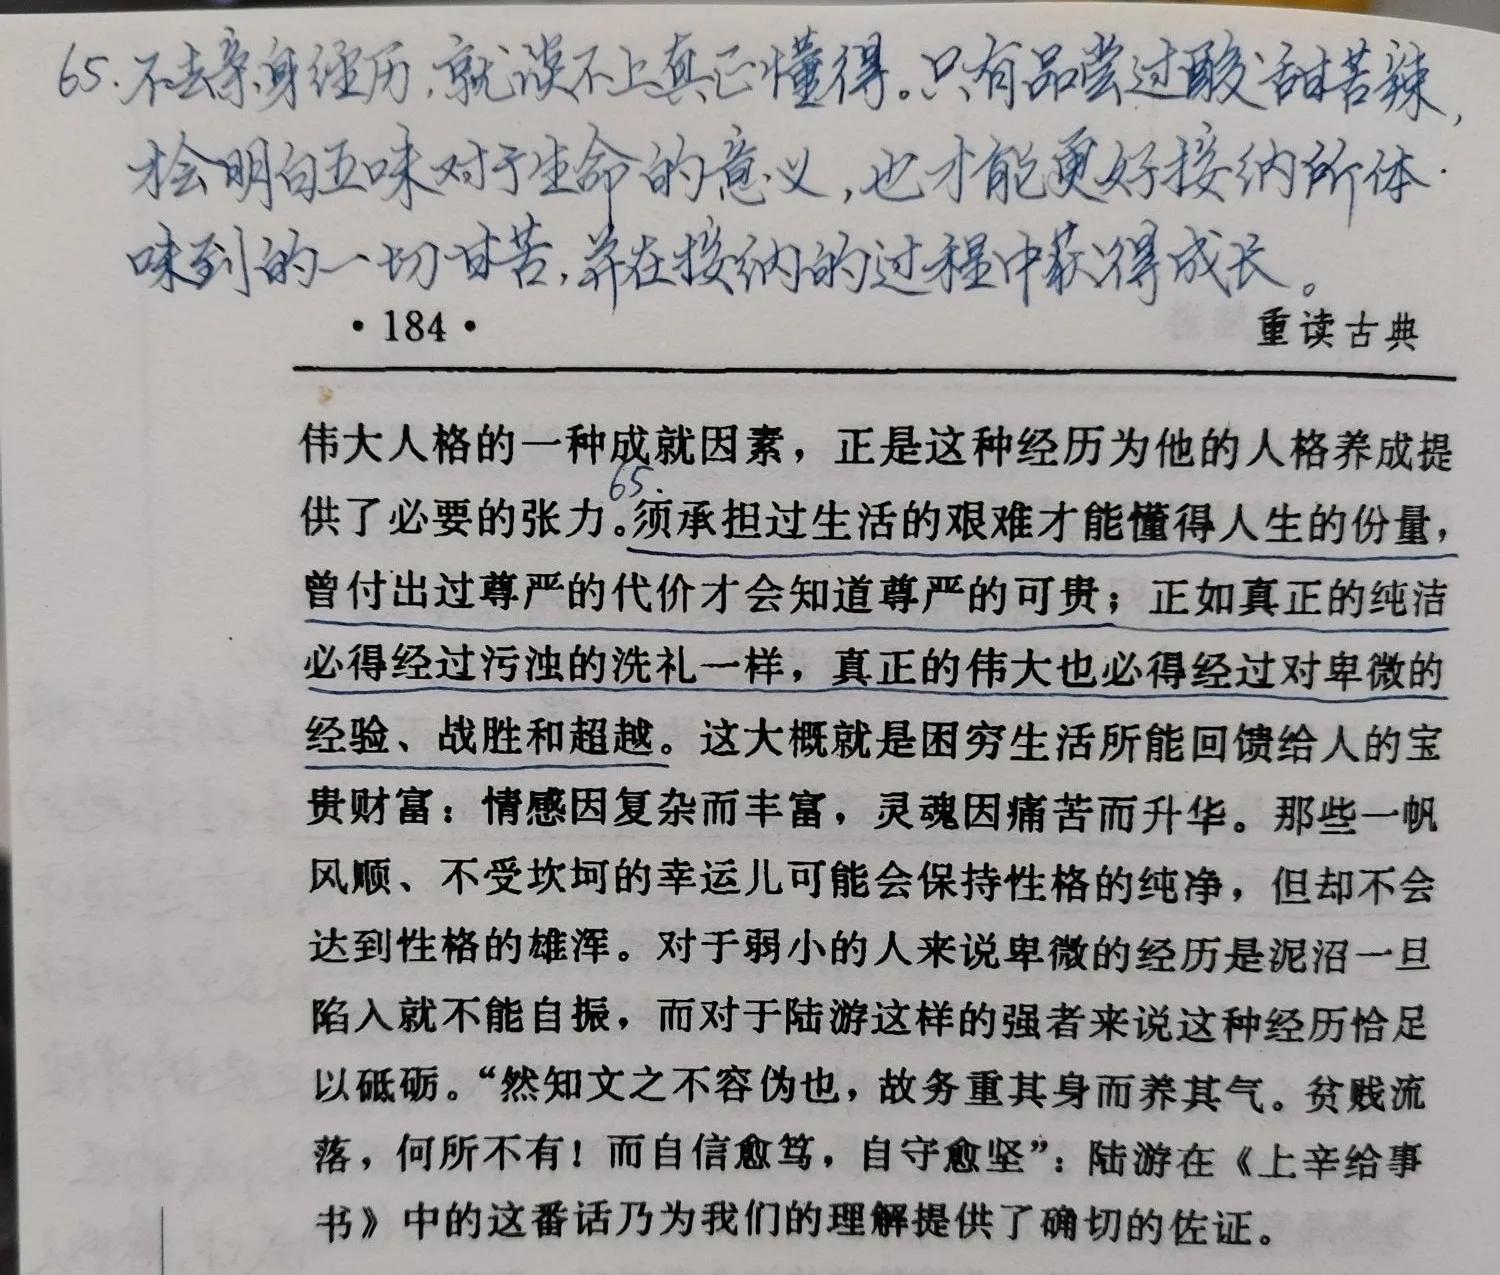 65.不去亲身经历,就谈不上真正懂得。只有品尝过酸甜苦辣,
才会明白五味对于生命的意义,也才能更好接纳所体
味到的一切甘苦,并在接纳的过程中获得成长。
·184· 重读古典
伟大人格的一种成就因素，正是这种经历为他的人格养成提
65.
供了必要的张力。须承担过生活的艰难才能懂得人生的份量，
曾付出过尊严的代价才会知道尊严的可贵；正如真正的纯洁
必得经过污浊的洗礼一样，真正的伟大也必得经过对卑微的
经验、战胜和超越。这大概就是困穷生活所能回馈给人的宝
贵财富：情感因复杂而丰富，灵魂因痛苦而升华。那些一帆
风顺、不受坎坷的幸运儿可能会保持性格的纯净，但却不会
达到性格的雄浑。对于弱小的人来说卑微的经历是泥沼一旦
陷入就不能自振，而对于陆游这样的强者来说这种经历恰足
以砥砺。“然知文之不容伪也，故务重其身而养其气。贫贱流
落，何所不有！而自信愈笃，自守愈坚”：陆游在《上辛给事
书》中的这番话乃为我们的理解提供了确切的佐证。